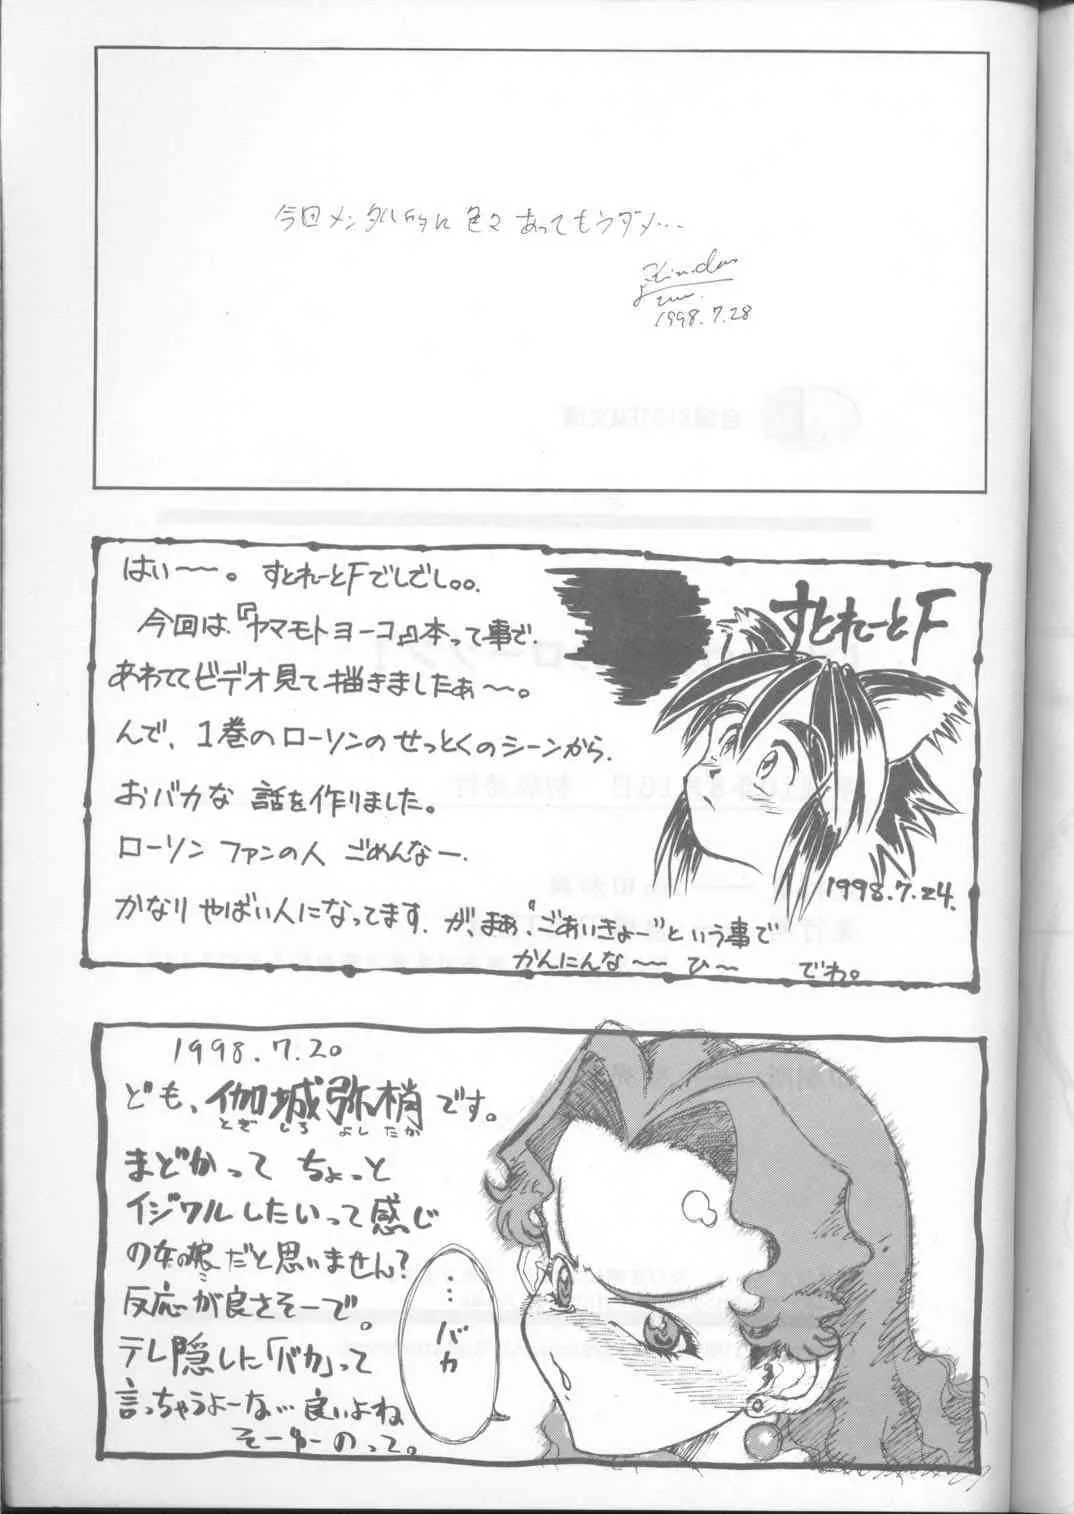 今回メンタル的に色々あってもうダメ…
1998.7.28
はい〜。すとれーとFでしでし。。
すとれーとF
今回は『ヤマモトヨーコ』本って事で、
あわててビデオ見て描きましたぁ〜。
んで、1巻のローソンのせっとくのシーンから、
おバカな話を作りました。
ローソンファンの人 ごめんなー、
かなりやばい人になってます、が、まぁ、“ごあいきょー”という事で
かんにんな〜 ひ〜 でわ。
1998.7.24.
1998.7.20
ども、伽城弥梢です。
とぎしろ よしたか
まどかって ちょっと
イジワルしたいって感じ
の女の娘だと思いません?
反応が良さそーで。
テレ隠した「バカ」って
言っちゃうよーな…良いよね
そーゆーのって。
…バカ